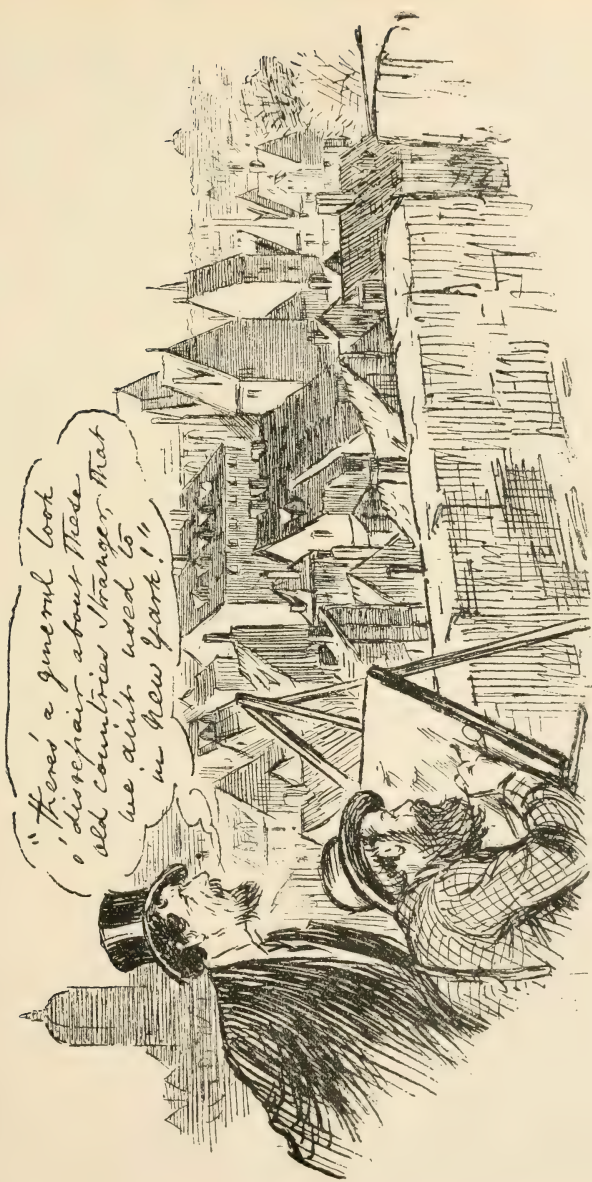 "There's a general look
o' disrepair about these
old countries Stranger, that
we ain't used to
in New York!"